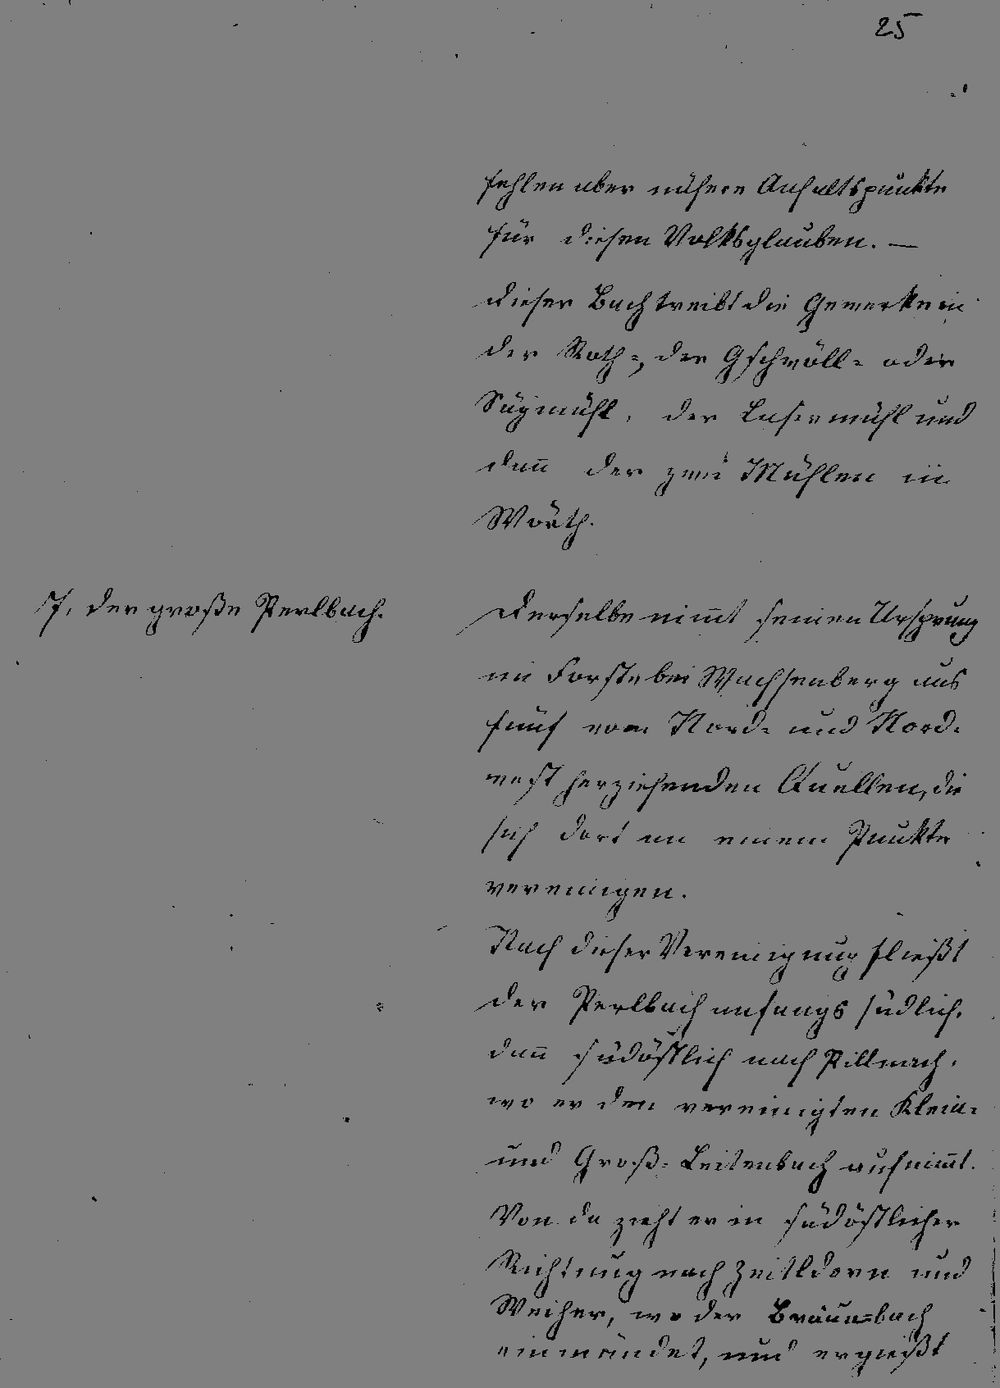 25
fehlen aber nähere Anhaltspunkte
für diesen Volksglauben. —
Dieser Bach treibt die Gewerke in
der Roth-, der Gschwöll- oder
Sägmühl, der Lasermühl und
dañ der zwei Mühlen in
Wörth.
7, der große Perlbach.
Derselbe nim̃t seinen Ursprung
im Forste bei Wachsenberg aus
fünf vom Nord- und Nord-
west herziehenden Quellen, die
sich dort an einem Punkte
vereinigen.
Nach dieser Vereinigung fließt
der Perlbach anfangs südlich,
dañ südöstlich nach Pillnach,
wo er den vereinigten Klein-
und Groß-Leitenbach aufnim̃t.
Von da zieht er in südöstlicher
Richtung nach Zeitldorn und
Weiher, wo der Bräun=bach
einmündet, und ergießt